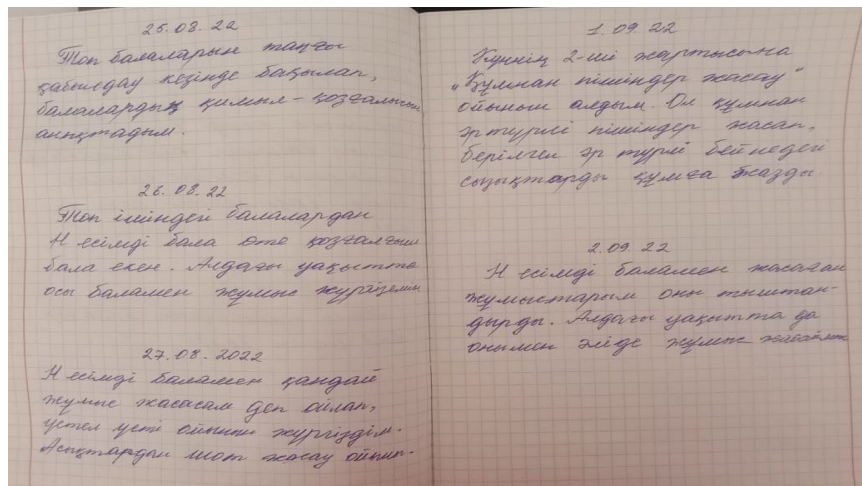 25.08.22
Топ балаларын таңғы
қабылдау кезінде бақылап,
балалардың қимыл-қозғалысын
анықтадым.
26.08.22
Топ ішіндегі балалардан
Н есімді бала өте қозғалғыш
бала екен. Алдағы уақытта
осы баламен жұмыс жүргіземін
27.08.2022
Н есімді баламен қандай
жұмыс жасасам деп ойлап,
үстел үсті ойынын жүргіздім.
Асықтардан шот жасау ойнын.
1.09.22
Күннің 2-ші жартысына
"Құмнан пішіндер жасау"
ойынын алдым. Ол құмнан
әртүрлі пішіндер жасап,
берілген әр түрлі бейнедегі
сызықтарды құмға жазды
2.09.22
Н есімді баламен жасаған
жұмыстарым оны тыштан-
дырды. Алдағы уақытта да
онымен әліде жұмыс